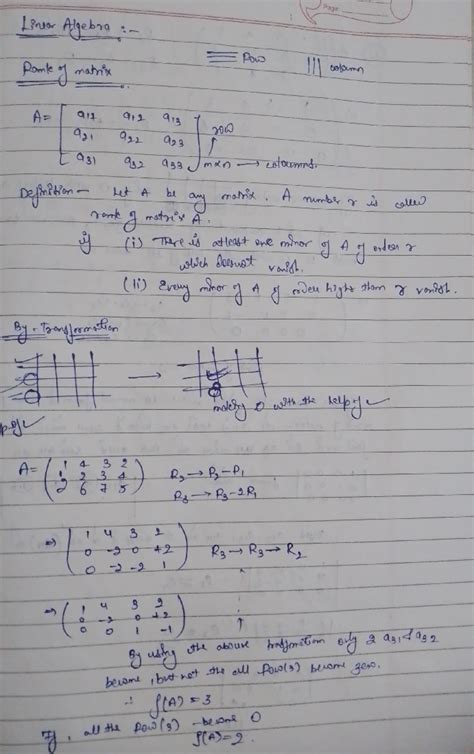 Page
Linear Algebra :-
Row ||| column
Rank of matrix
A = [ a11 a12 a13
a21 a22 a23
a31 a32 a33 ] m×n → coloumns.
row
Definition - Let A be any matrix. A number r is called
rank of matrix A.
if (i) There is atleast one minor of A of order r
which doesnot vanish.
(ii) Every minor of A of order high than r vanish.
By - Transformation
making 0 with the help of
A = ( 1 4 3 2
1 2 3 4
2 6 7 5 )
R2 → R2-R1
R3 → R3-2R1
⇒ ( 1 4 3 2
0 -2 0 +2
0 -2 -2 1 )
R3 → R3 → R2
⇒ ( 1 4 3 2
0 -2 0 +2
0 0 1 -1 )
By using the above only 2 a31 & a32
become, but not the all Row(3) become zero.
∴ ρ(A) = 3
If, all the Row(3) become 0
ρ(A) = 2.